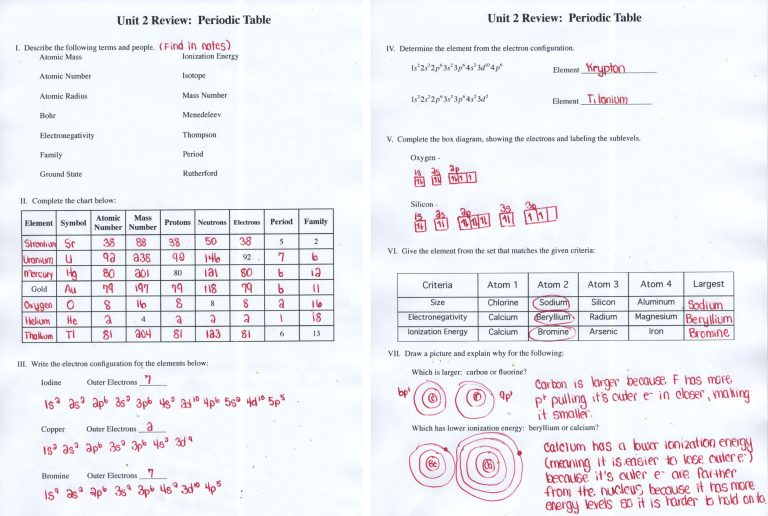 Unit 2 Review: Periodic Table
I. Describe the following terms and people. (Find in notes)
Atomic Mass Ionization Energy
Atomic Number Isotope
Atomic Radius Mass Number
Bohr Menedeleev
Electronegativity Thompson
Family Period
Ground State Rutherford
II. Complete the chart below:
Element Symbol Atomic Number Mass Number Protons Neutrons Electrons Period Family
Strontium Sr 38 88 38 50 38 5 2
Uranium U 92 238 92 146 92 7 6
Mercury Hg 80 201 80 121 80 6 12
Gold Au 79 197 79 118 79 6 11
Oxygen O 8 16 8 8 8 2 16
Helium He 2 4 2 2 2 1 18
Thallium Tl 81 204 81 123 81 6 13
III. Write the electron configuration for the elements below:
Iodine Outer Electrons 7
1s² 2s² 2p⁶ 3s² 3p⁶ 4s² 3d¹⁰ 4p⁶ 5s² 4d¹⁰ 5p⁵
Copper Outer Electrons 2
1s² 2s² 2p⁶ 3s² 3p⁶ 4s² 3d⁹
Bromine Outer Electrons 7
1s² 2s² 2p⁶ 3s² 3p⁶ 4s² 3d¹⁰ 4p⁵
Unit 2 Review: Periodic Table
IV. Determine the element from the electron configuration.
1s²2s²2p⁶3s²3p⁶4s²3d¹⁰4p⁶ Element Krypton
1s²2s²2p⁶3s²3p⁶4s²3d² Element Titanium
V. Complete the box diagram, showing the electrons and labeling the sublevels.
Oxygen -
1s 2s 2p
Silicon -
1s 2s 2p 3s 3p
VI. Give the element from the set that matches the given criteria:
Criteria Atom 1 Atom 2 Atom 3 Atom 4 Largest
Size Chlorine Sodium Silicon Aluminum Sodium
Electronegativity Calcium Beryllium Radium Magnesium Beryllium
Ionization Energy Calcium Bromine Arsenic Iron Bromine
VII. Draw a picture and explain why for the following:
Which is larger: carbon or fluorine?
6p⁺ C F 9p⁺
Carbon is larger because F has more
p⁺ pulling it's outer e⁻ in closer, making
it smaller.
Which has lower ionization energy: beryllium or calcium?
Be Ca
Calcium has a lower ionization energy
(meaning it is easier to lose outer e⁻)
because it's outer e⁻ are farther
from the nucleus because it has more
energy levels so it is harder to hold on to.